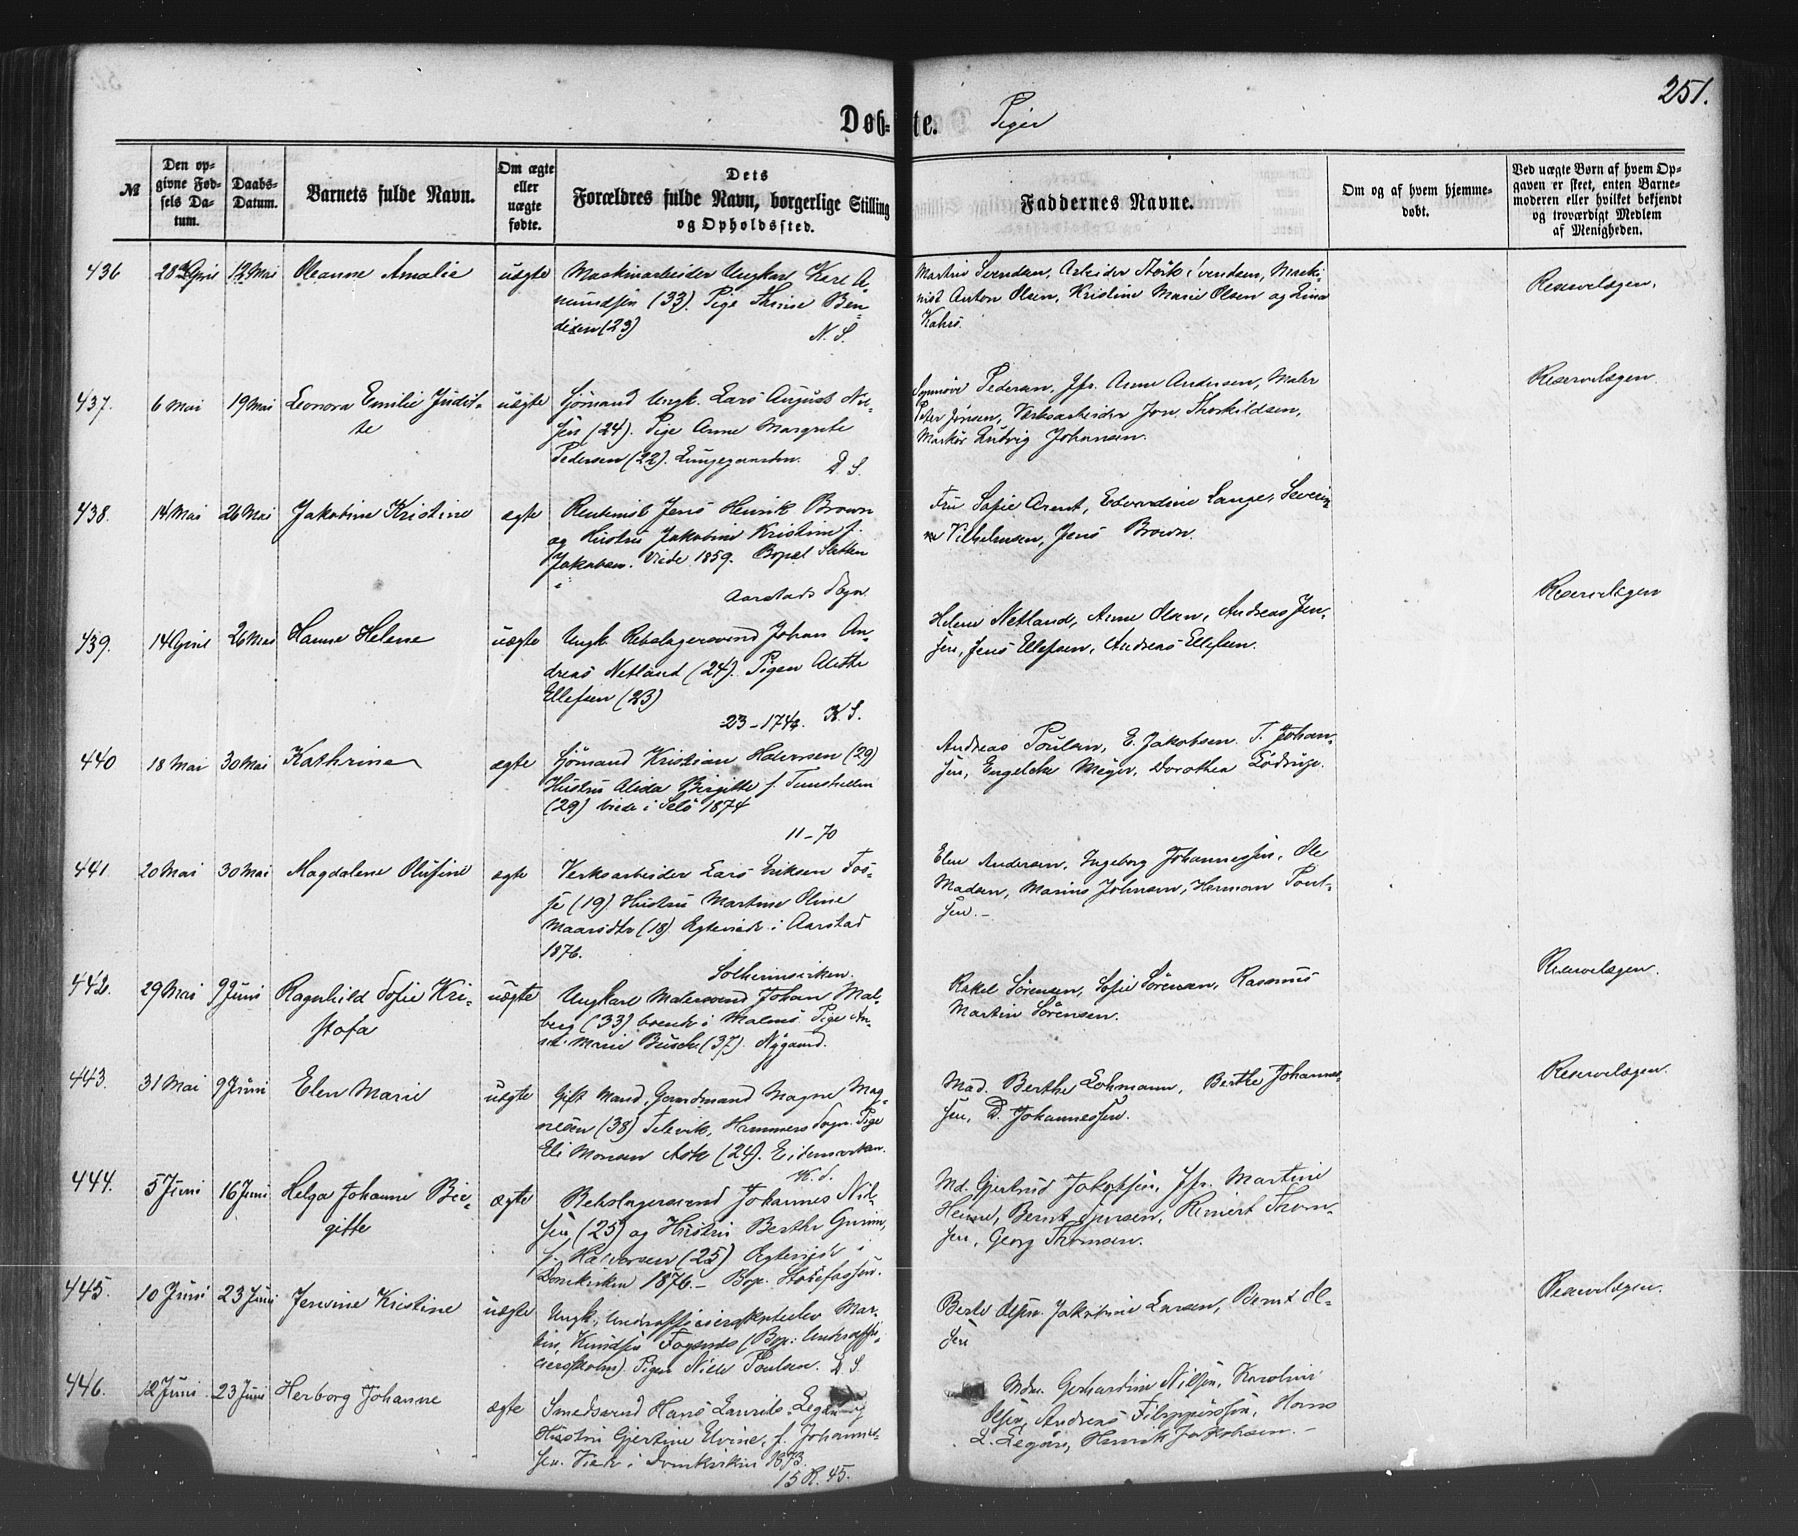 251.
Døb-te. Piger
№
Den op-
givne Fød-
sels Da-
tum.
Daabs-
Datum.
Barnets fulde Navn.
Om ægte
eller
uægte
fødte.
Dets
Forældres fulde Navn, borgerlige Stilling
og Opholdssted.
Faddernes Navne.
Om og af hvem hjemme-
døbt.
Ved uægte Børn af hvem Op-
gaven er skeet, enten Barne-
moderen eller hvilket bekjendt
og troværdigt Medlem
af Menigheden.
436 28 April 12 Mai Oleanne Amalie uægte Maskinarbeider Ungkarl Karl A-
mundsen (33). Pige Trine Ben-
dixen (23)
N. S.
Martin Svendsen, Arbeider Størk Svendsen, Maski-
nist Anton Olsen, Kristine Marie Olsen og Lina
Kahrs.
Reservelægen.
437. 6 Mai 19 Mai Leonora Emilie Judit-
te
uægte Sjømand Ungk. Lars August Nil-
sen (24). Pige Anne Margrete
Pedersen (22). Lungegaarden.
D. S.
Synnøve Pedersen, Jfr. Anne Andersen, Maler
Peter Jensen, Verksarbeider Jon Thorkildsen,
Markør Ludvig Johansen.
Reservelægen
438. 14 Mai 26 Mai Jakobine Kristine ægte Rentenist Jens Henrik Brown
og Hustru Jakobine Kristine f.
Jakobsen. Viede 1859. Bopæl Sletten
i
Aarstads Sogn.
Fru Sofie Arent, Edvardine Lange, Severi-
ne Vilhelmsen, Jens Brown.
439. 14 April 26 Mai Hanne Helene uægte Ungk. Rebslagersvend Johan An-
dreas Netland (24). Pigen Alethe
Ellefsen (23)
23-174. K. S.
Helene Netland, Anne Olsen, Andreas Jen-
sen, Jens Ellefsen, Andreas Ellefsen.
Reservelægen
440 18 Mai 30 Mai Kathrine ægte Sjømand Kristian Halvorsen (29)
Hustru Alida Birgitte f.
(29) viede i Selø 1874
11-70
Andreas Poulsen, E. Jakobsen. T. Johan-
sen, Engelche Meyer, Dorothea Lødrup.
441. 20 Mai 30 Mai Magdalene Olufine ægte Verksarbeider Lars Eriksen Fos-
se (19). Hustru Martine Oline
(18). Ægteviede i Aarstad
1876.
Solheimsviken.
Elen Andersen, Ingeborg Johannessen, Ole
Madsen, Marius Johnsen, Herman Pont-
sen.-
442. 29 Mai 9 Juni Ragnhild Sofie Kri-
stofa
uægte Ungkarl Malersvend Johan Mal-
berg (33) boende i Malmø. Pige An-
ne Marie Busch (37). Nygaard.
Rakel Sørensen, Sofie Sørensen, Rasmus
Martin Sørensen.
Reservelægen.
443. 31 Mai 9 Juni Elen Marie uægte Gift Mand, Gaardmand Mogne Mog-
nesen (38) Televik, Hammers Sogn. Pige
Eli Monsen Ask (24). Eidemarken.
K. S.
Mad. Berthe Lohmann, Berthe Johannes-
sen, D. Johannessen.
Reservelægen.
444. 5 Juni 16 Juni Helga Johanne Bir-
gitte
ægte Rebslagersvend Johannes Nil-
sen (25) og Hustru Berthe
f. Halvorsen (25) Ægteviede i
Domkirken 1876.- Bop.
Md. Gjertrud Jakobsen, Jfr. Martine
Heine, Bernt Iversen, Reinert Thom-
sen, Georg Thomsen.
445. 10 Juni 23 Juni Jensine Kristine uægte Ungk. Underofficierskoleelev Mar-
tin Knudsen Fosnæs (Bop: Underoffi-
ciersskolen). Pigen Nille Poulsen. D. S.
Berte Olsen, Jakobine Larsen, Bernt Ol-
sen
Reservelægen.
446. 12 Juni 23 Juni Herborg Johanne ægte Smedsvend Hans Laurits Legan og
Hustru Gjertine Elvine, f. Johannes-
sen. Viede i Domkirken 1873.
15 R. 45.
Mdm. Gerhardine Nilsen, Karoline
Olsen, Andreas Filippussen, Hans
L. Legan, Henrik Jakobsen.-